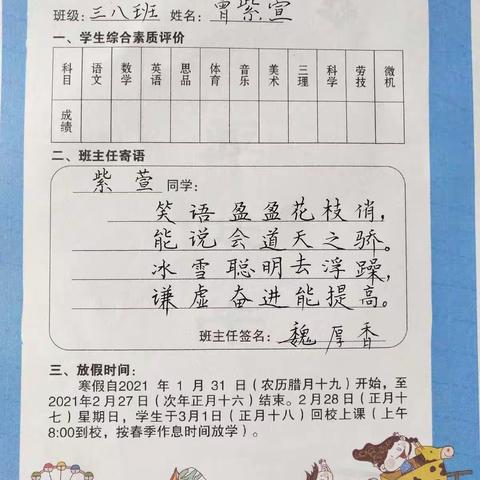 班级:三八班 姓名:曾紫萱
一、学生综合素质评价
科目 语文 数学 英语 思品 体育 音乐 美术 三理 科学 劳技 微机
成绩
二、班主任寄语
紫萱同学:
笑语盈盈花枝俏,
能说会道天之骄。
冰雪聪明去浮躁,
谦虚奋进能提高。
班主任签名:魏厚香
三、放假时间:
寒假自2021 年 1 月 31 日(农历腊月十九)开始,至
2021年2月27日(次年正月十六)结束。2月28日(正月十
七)星期日,学生于3月1日(正月十八)回校上课(上午
8:00到校,按春季作息时间放学)。